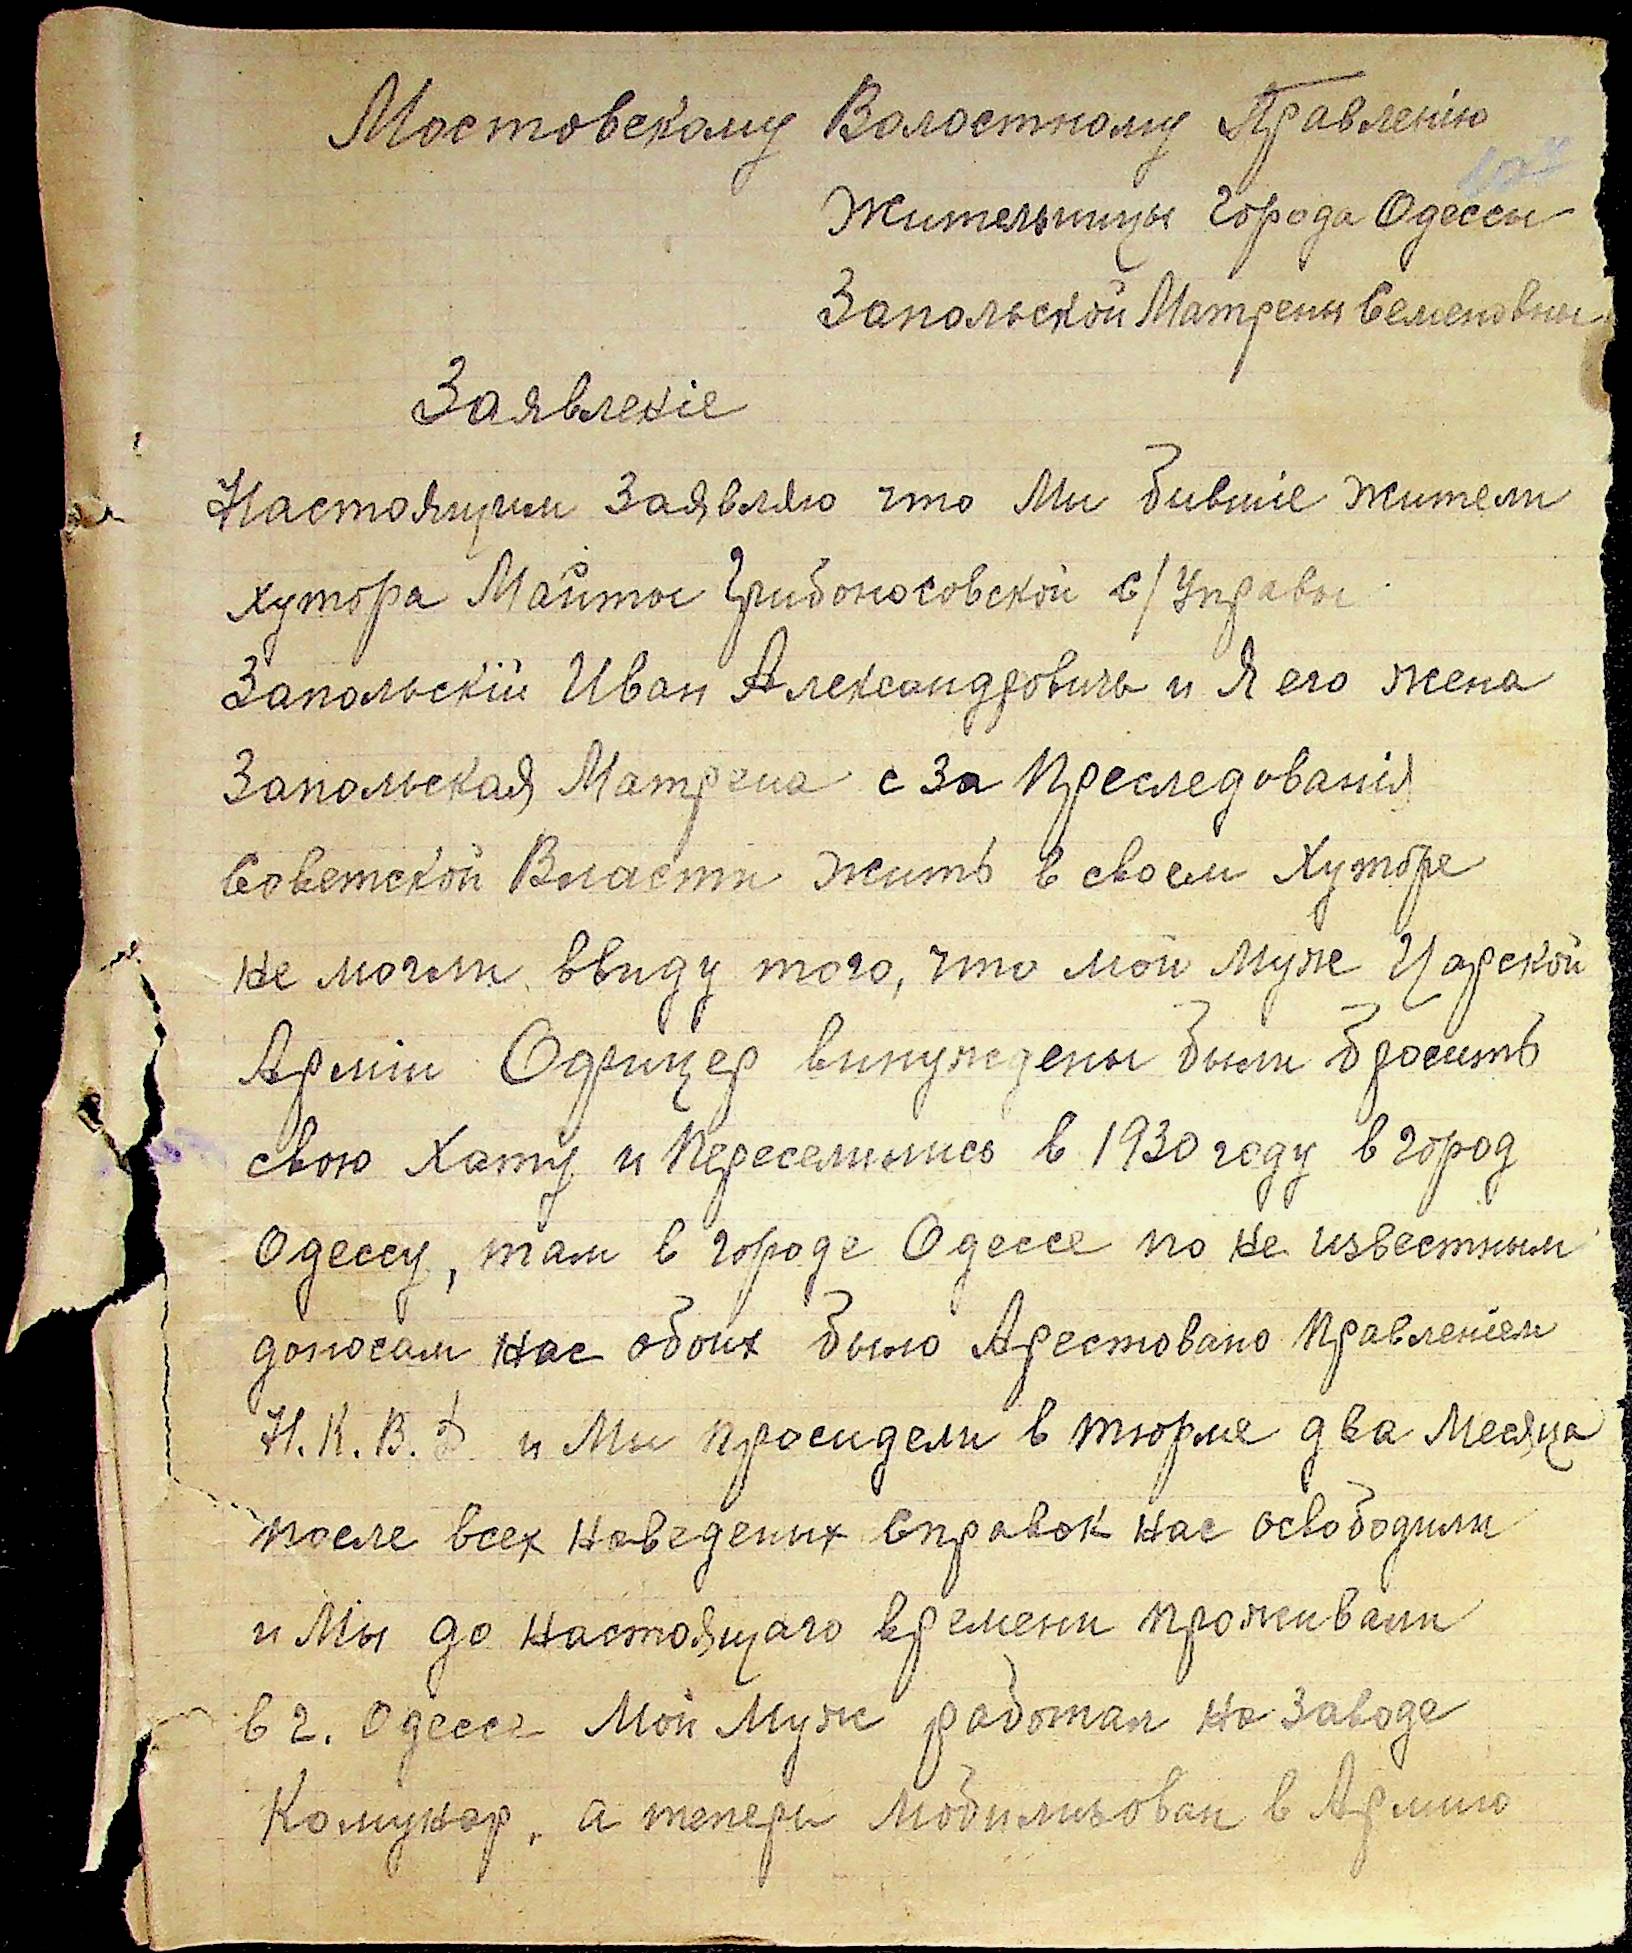 Мостовскому Волостному Правленію
Жительницы Города Одессы
Запольской Матрены Семеновны
Заявленіе
Настоящим Заявляю что Ми бившіе жители
хутора Майты Грибоносовской с/Управы
Запольскій Иван Александровичь и Я его жена
Запольская Матрена с за Преследованія
Советской Власти жить в своем Хуторе
не могли ввиду того, что мой муже Царской
Арміи Офицер винуждены были бросить
свою Хату и Переселились в 1930 году в город
Одессу, там в городе Одессе по не известным
доносам нас обоих было Арестовано Правленіем
Н.К.В.Д и Ми просидели в тюрме два Месяца
после всех наведеных Справок нас освободили
и Мы до настоящаго времени проживали
в г. Одессе Мой Муж работал на Заводе
Комунар, а теперь мобилизован в Армию